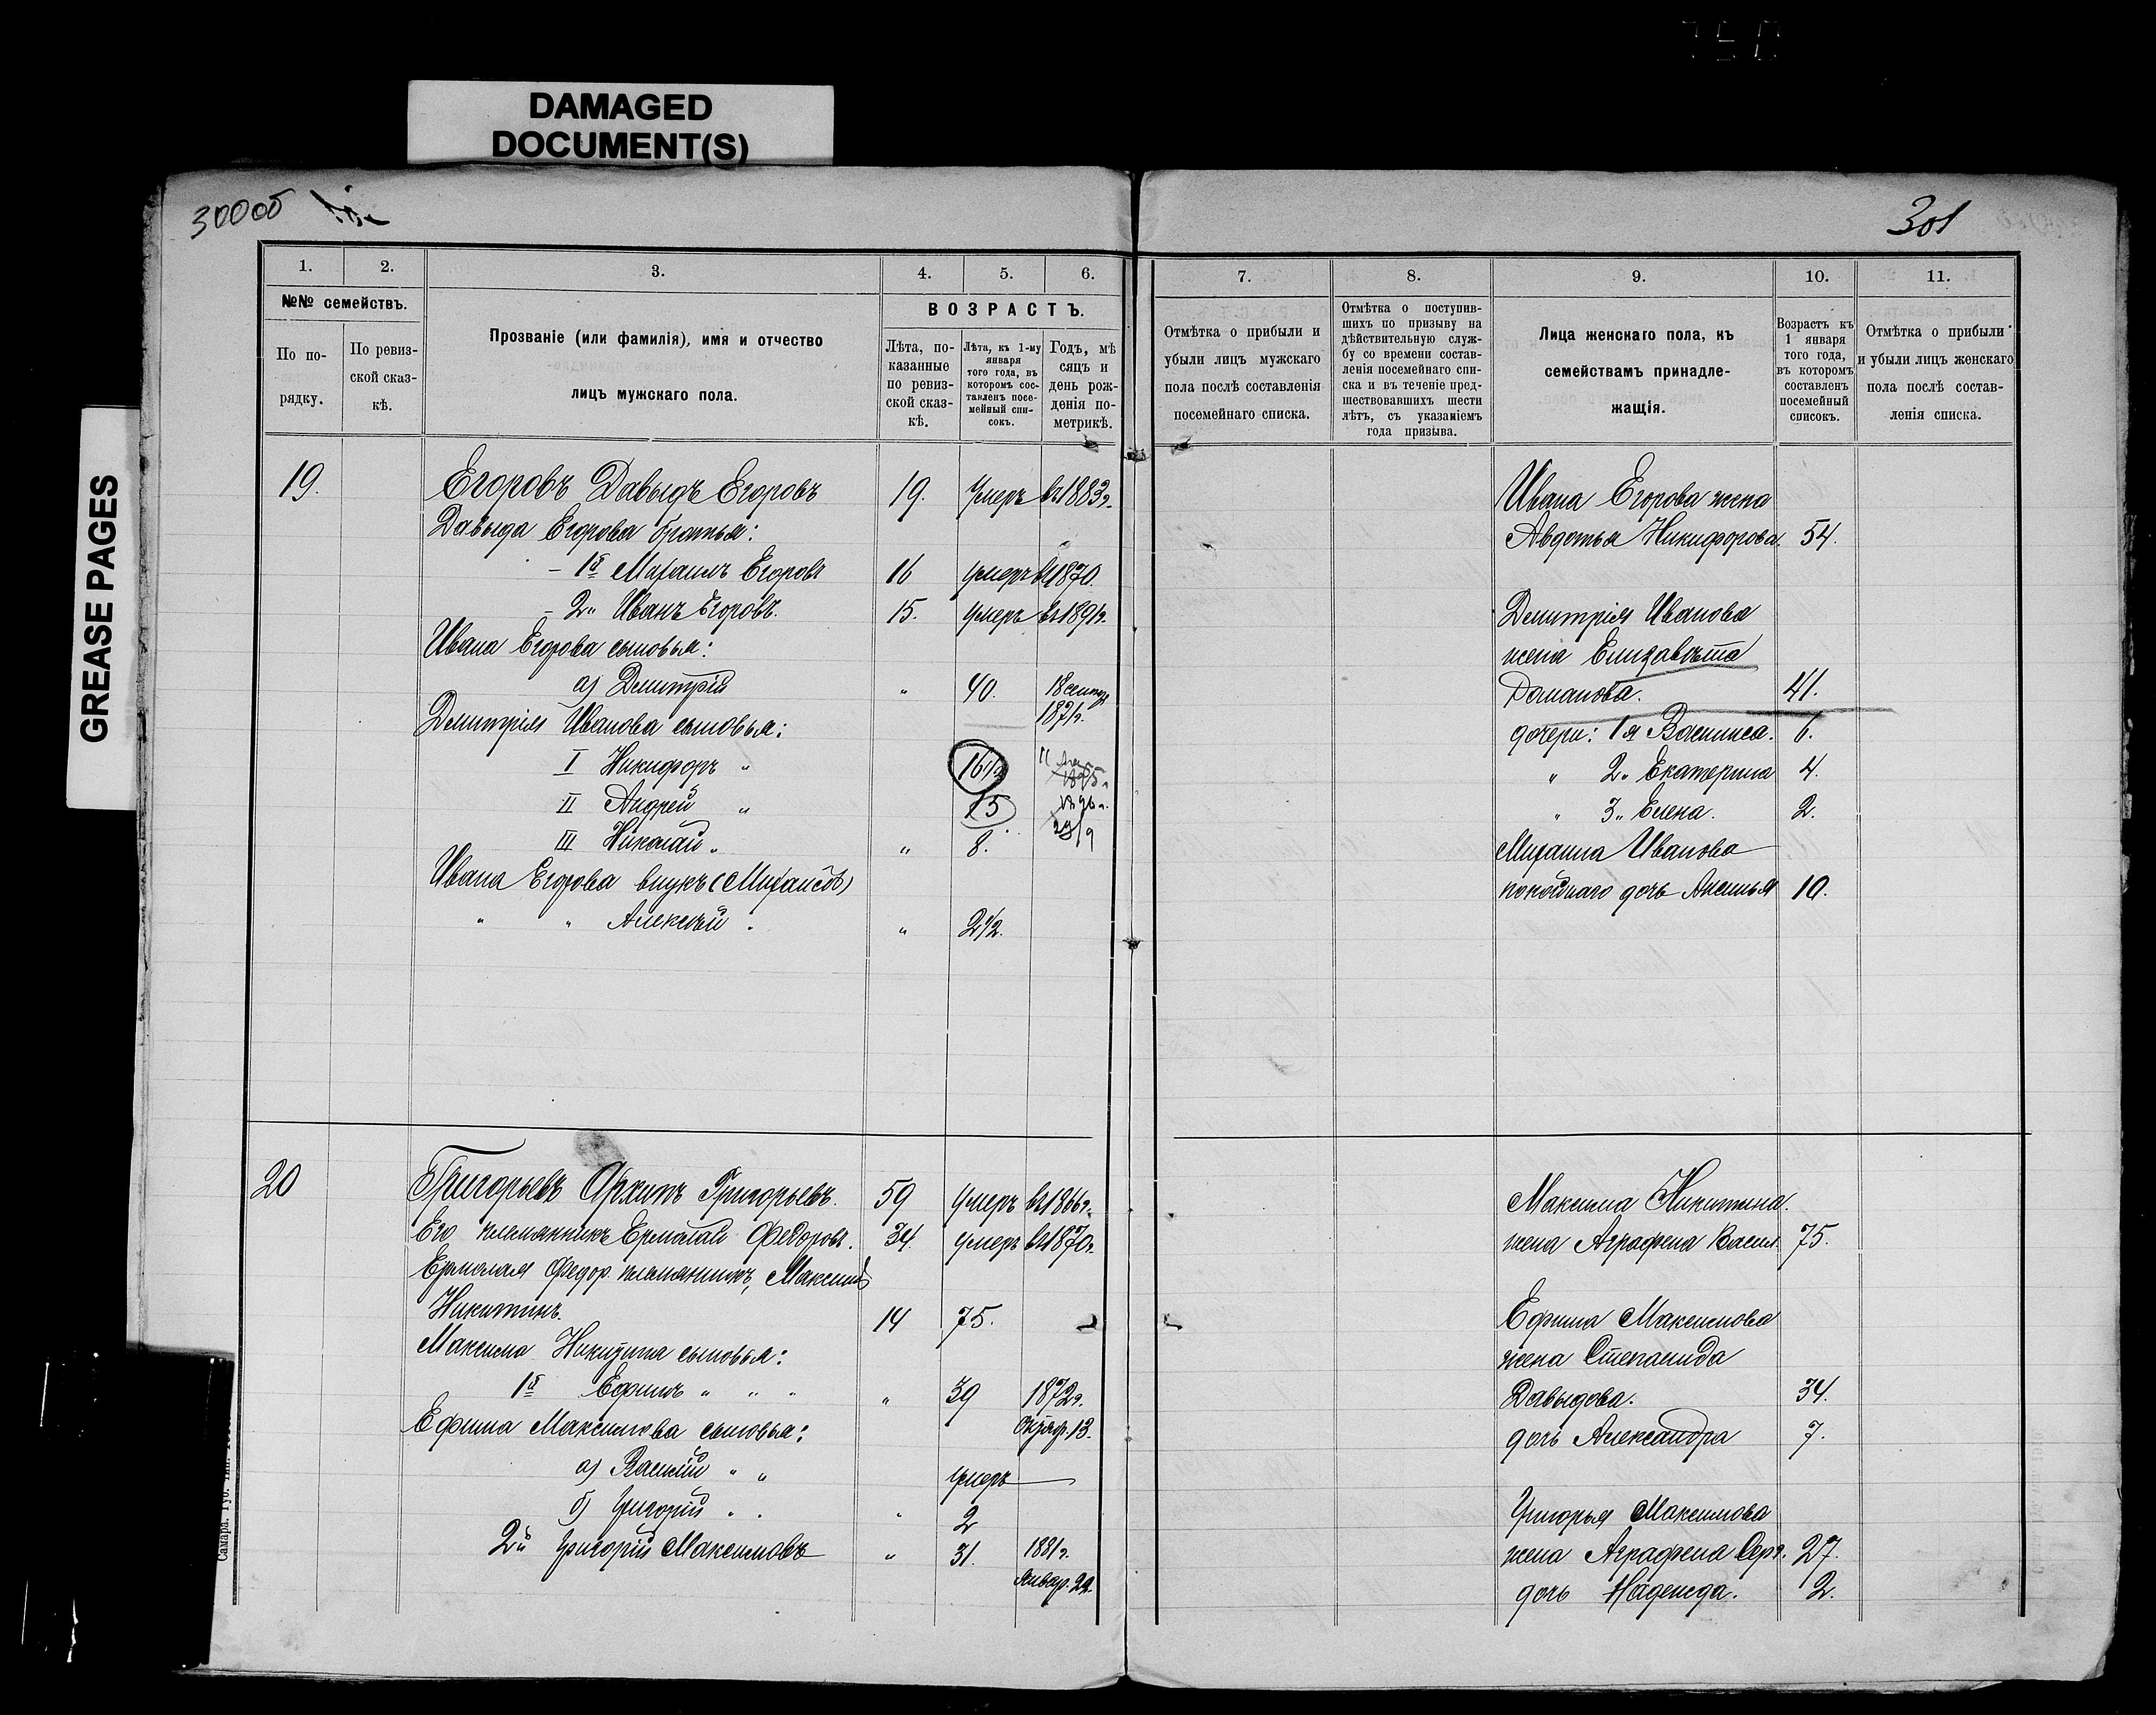 DAMAGED
DOCUMENT(S)
GREASE PAGES
300об
301
1. 2. 3. 4. 5. 6.
№№ семействъ.
По по-
рядку.
По ревиз-
ской сказ-
кѣ.
Прозваніе (или фамилія), имя и отчество
лицъ мужскаго пола.
ВОЗРАСТЪ.
Лѣта, по-
казанные
по ревиз-
ской сказ-
кѣ.
Лѣта, къ 1-му
января
того года, въ
которомъ сос-
тавленъ посе-
мейный спи-
сокъ.
Годъ, мѣ
сяцъ и
день рож-
денія по-
метрикѣ.
19. Егоровъ Давыдъ Егоровъ 19. Умеръ въ 1883г.
Давыда Егорова братья:
– 1й Михаилъ Егоровъ 16 умеръ въ 1870.
– 2„ Иванъ Егоровъ. 15. умеръ въ 1891г.
Ивана Егорова сыновья:
а) Дмитрій „ 40. 18 сентяб
1871г.
Дмитрія Иванова сыновья:
I Никифоръ „ 16 1/2
II Андрей „ 15
III Николай „ „ 8.
Ивана Егорова внукъ (Михайловъ)
„ „ Алексѣй „ „ 2 1/2.
20 Григорьевъ Архипъ Григорьевъ. 59 умеръ въ 1866г.
Его племянникъ Ермолай Федоровъ. 34. умеръ въ 1870г.
Ермолая Федор. племянникъ, Максимъ
Никитинъ. 14 75.
Максима Никитина сыновья:
1й Ефимъ „ „ „ „ 39 1872г.
Октяб. 13.
Ефима Максимова сыновья:
а) Василій „ „ умеръ
б) Григорій „ „ „ 2
2й Григорій Максимовъ „ 31. 1881г.
Январ. 22.
7. 8. 9. 10. 11.
Отмѣтка о прибыли и
убыли лицъ мужскаго
пола послѣ составленія
посемейнаго списка.
Отмѣтка о поступив-
шихъ по призыву на
дѣйствительную служ-
бу со времени состав-
ленія посемейнаго спи-
ска и въ теченіе пред-
шествовавшихъ шести
лѣтъ, съ указаніемъ
года призыва.
Лица женскаго пола, къ
семействамъ принадле-
жащія.
Возрастъ къ
1 января
того года,
въ которомъ
составленъ
посемейный
списокъ.
Отмѣтка о прибыли
и убыли лицъ женскаго
пола послѣ состав-
ленія списка.
Ивана Егорова жена
Авдотья Никифорова. 54.
Дмитрія Иванова
жена Елизавѣта
Романова. 41.
дочери: 1я Василиса. 6.
„ 2„ Екатерина 4.
„ 3„ Елена. 2.
Михаила Иванова
покойнаго дочь Аксинья 10.
Максима Никитина.
жена Аграфена Васил. 75.
Ефима Максимова
жена Степанида
Давыдова. 34.
дочь Александра 7.
Григорья Максимова
жена Аграфена Серг. 27.
дочь Надежда. 2.